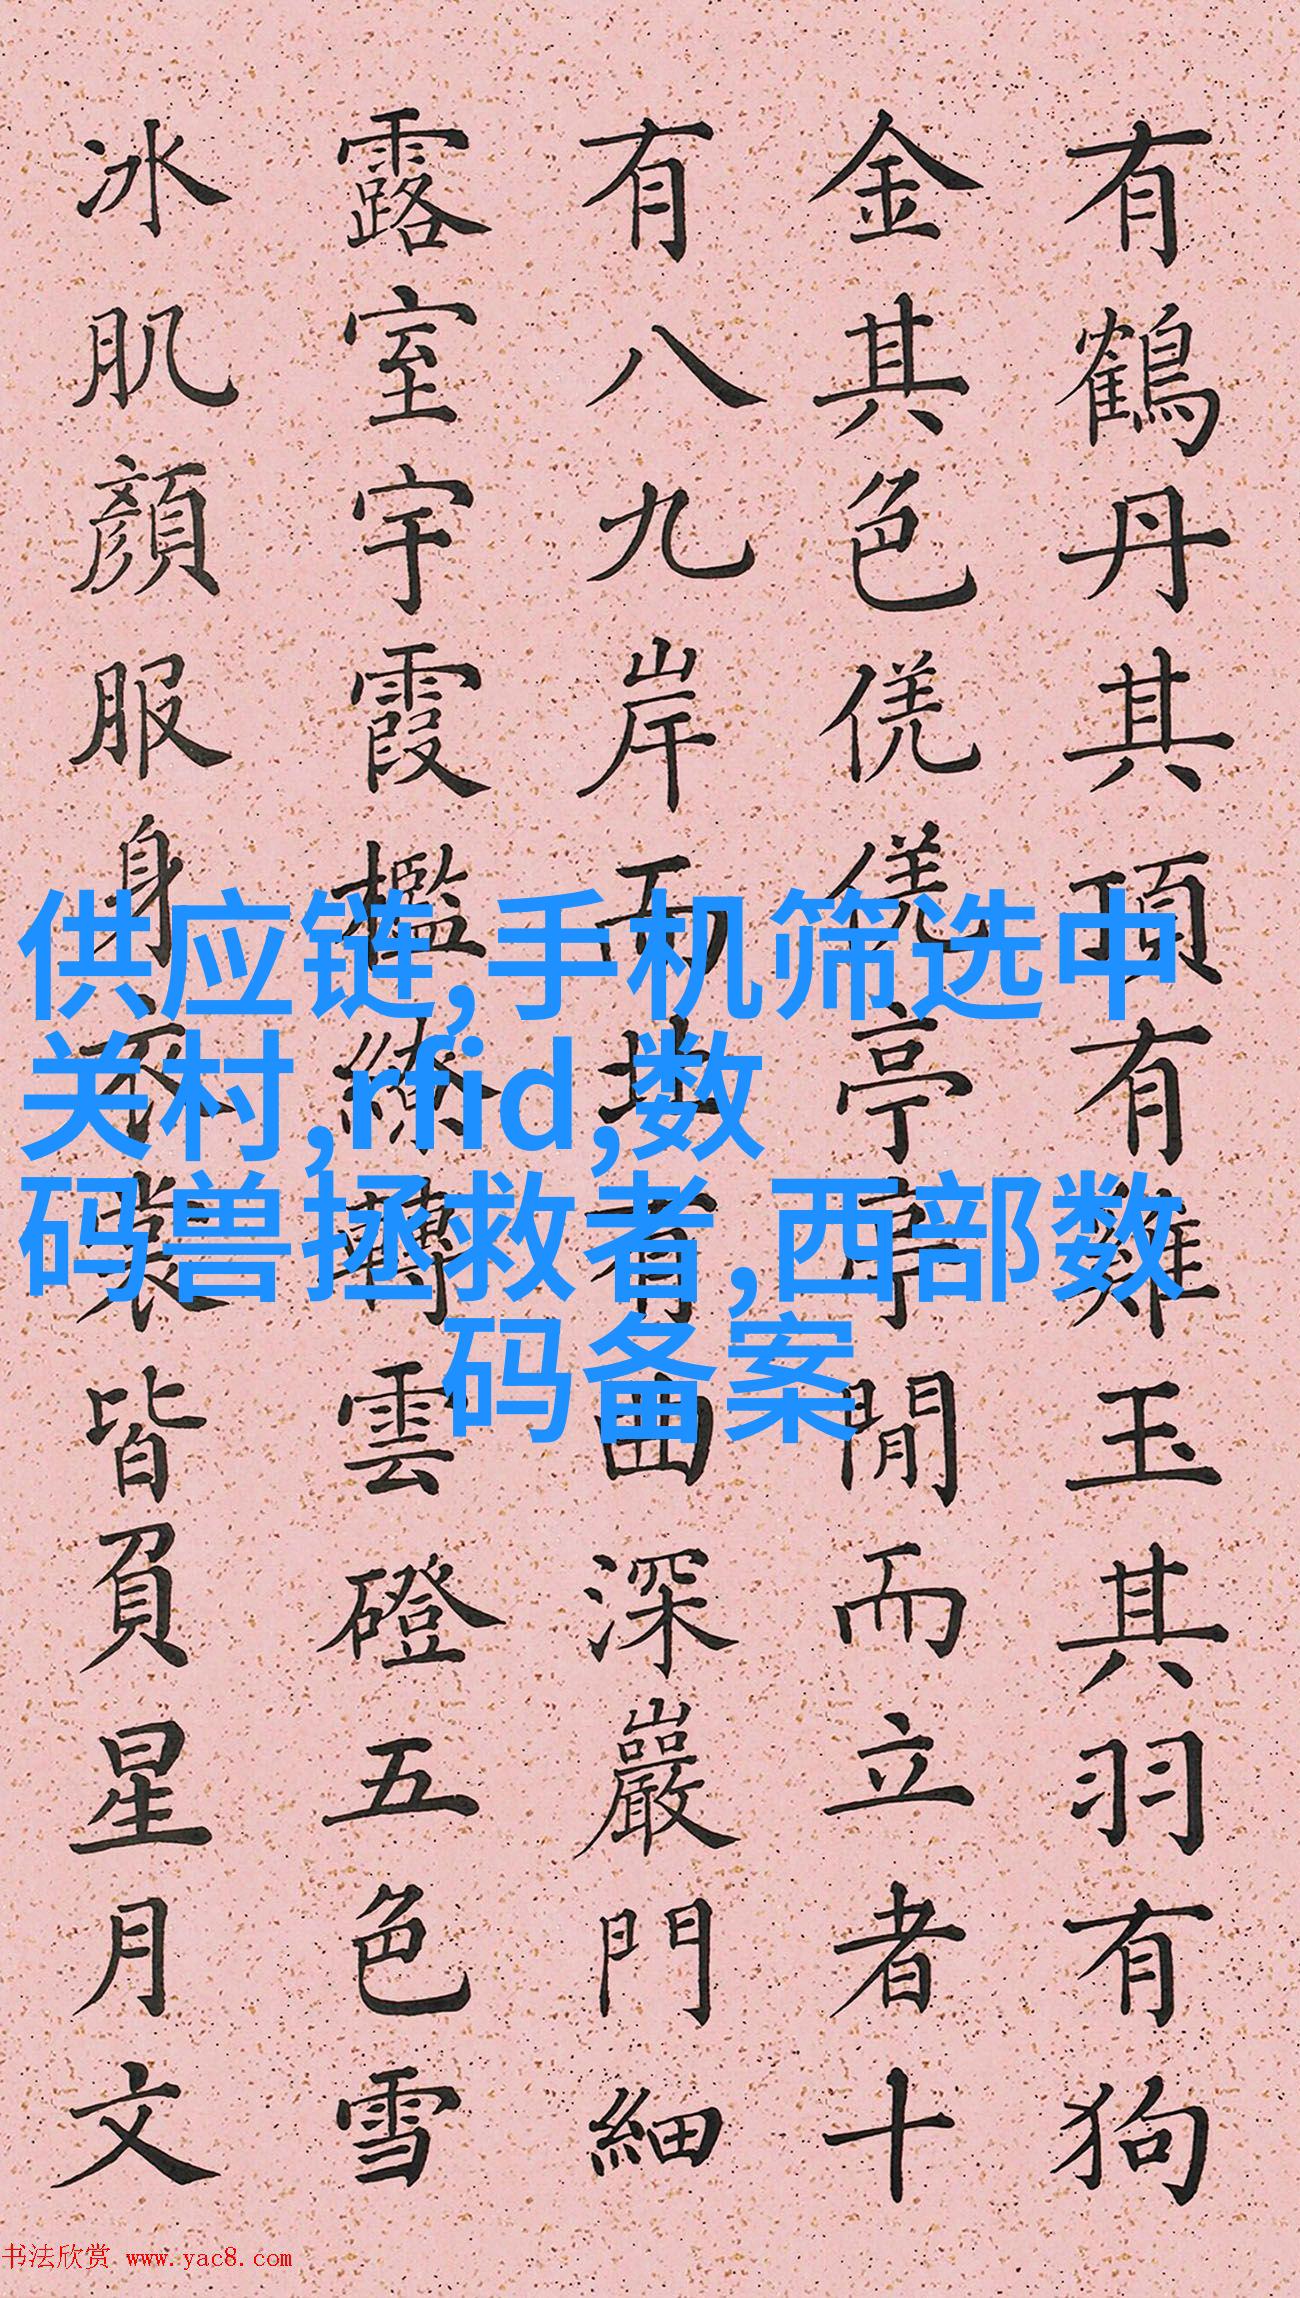 有鶴丹其頂有雞玉其羽有狗
金其色亭亭閒而立者十
有八九岸地有曲深巖門細
露室宇霞檻繚薄雲磴五色雪
冰肌顏服身衣裳皆負星月文
供应链,手机筛选中
关村,rfid,数
码兽拯救者,西部数
码备案
书法欣赏 www.yac8.com